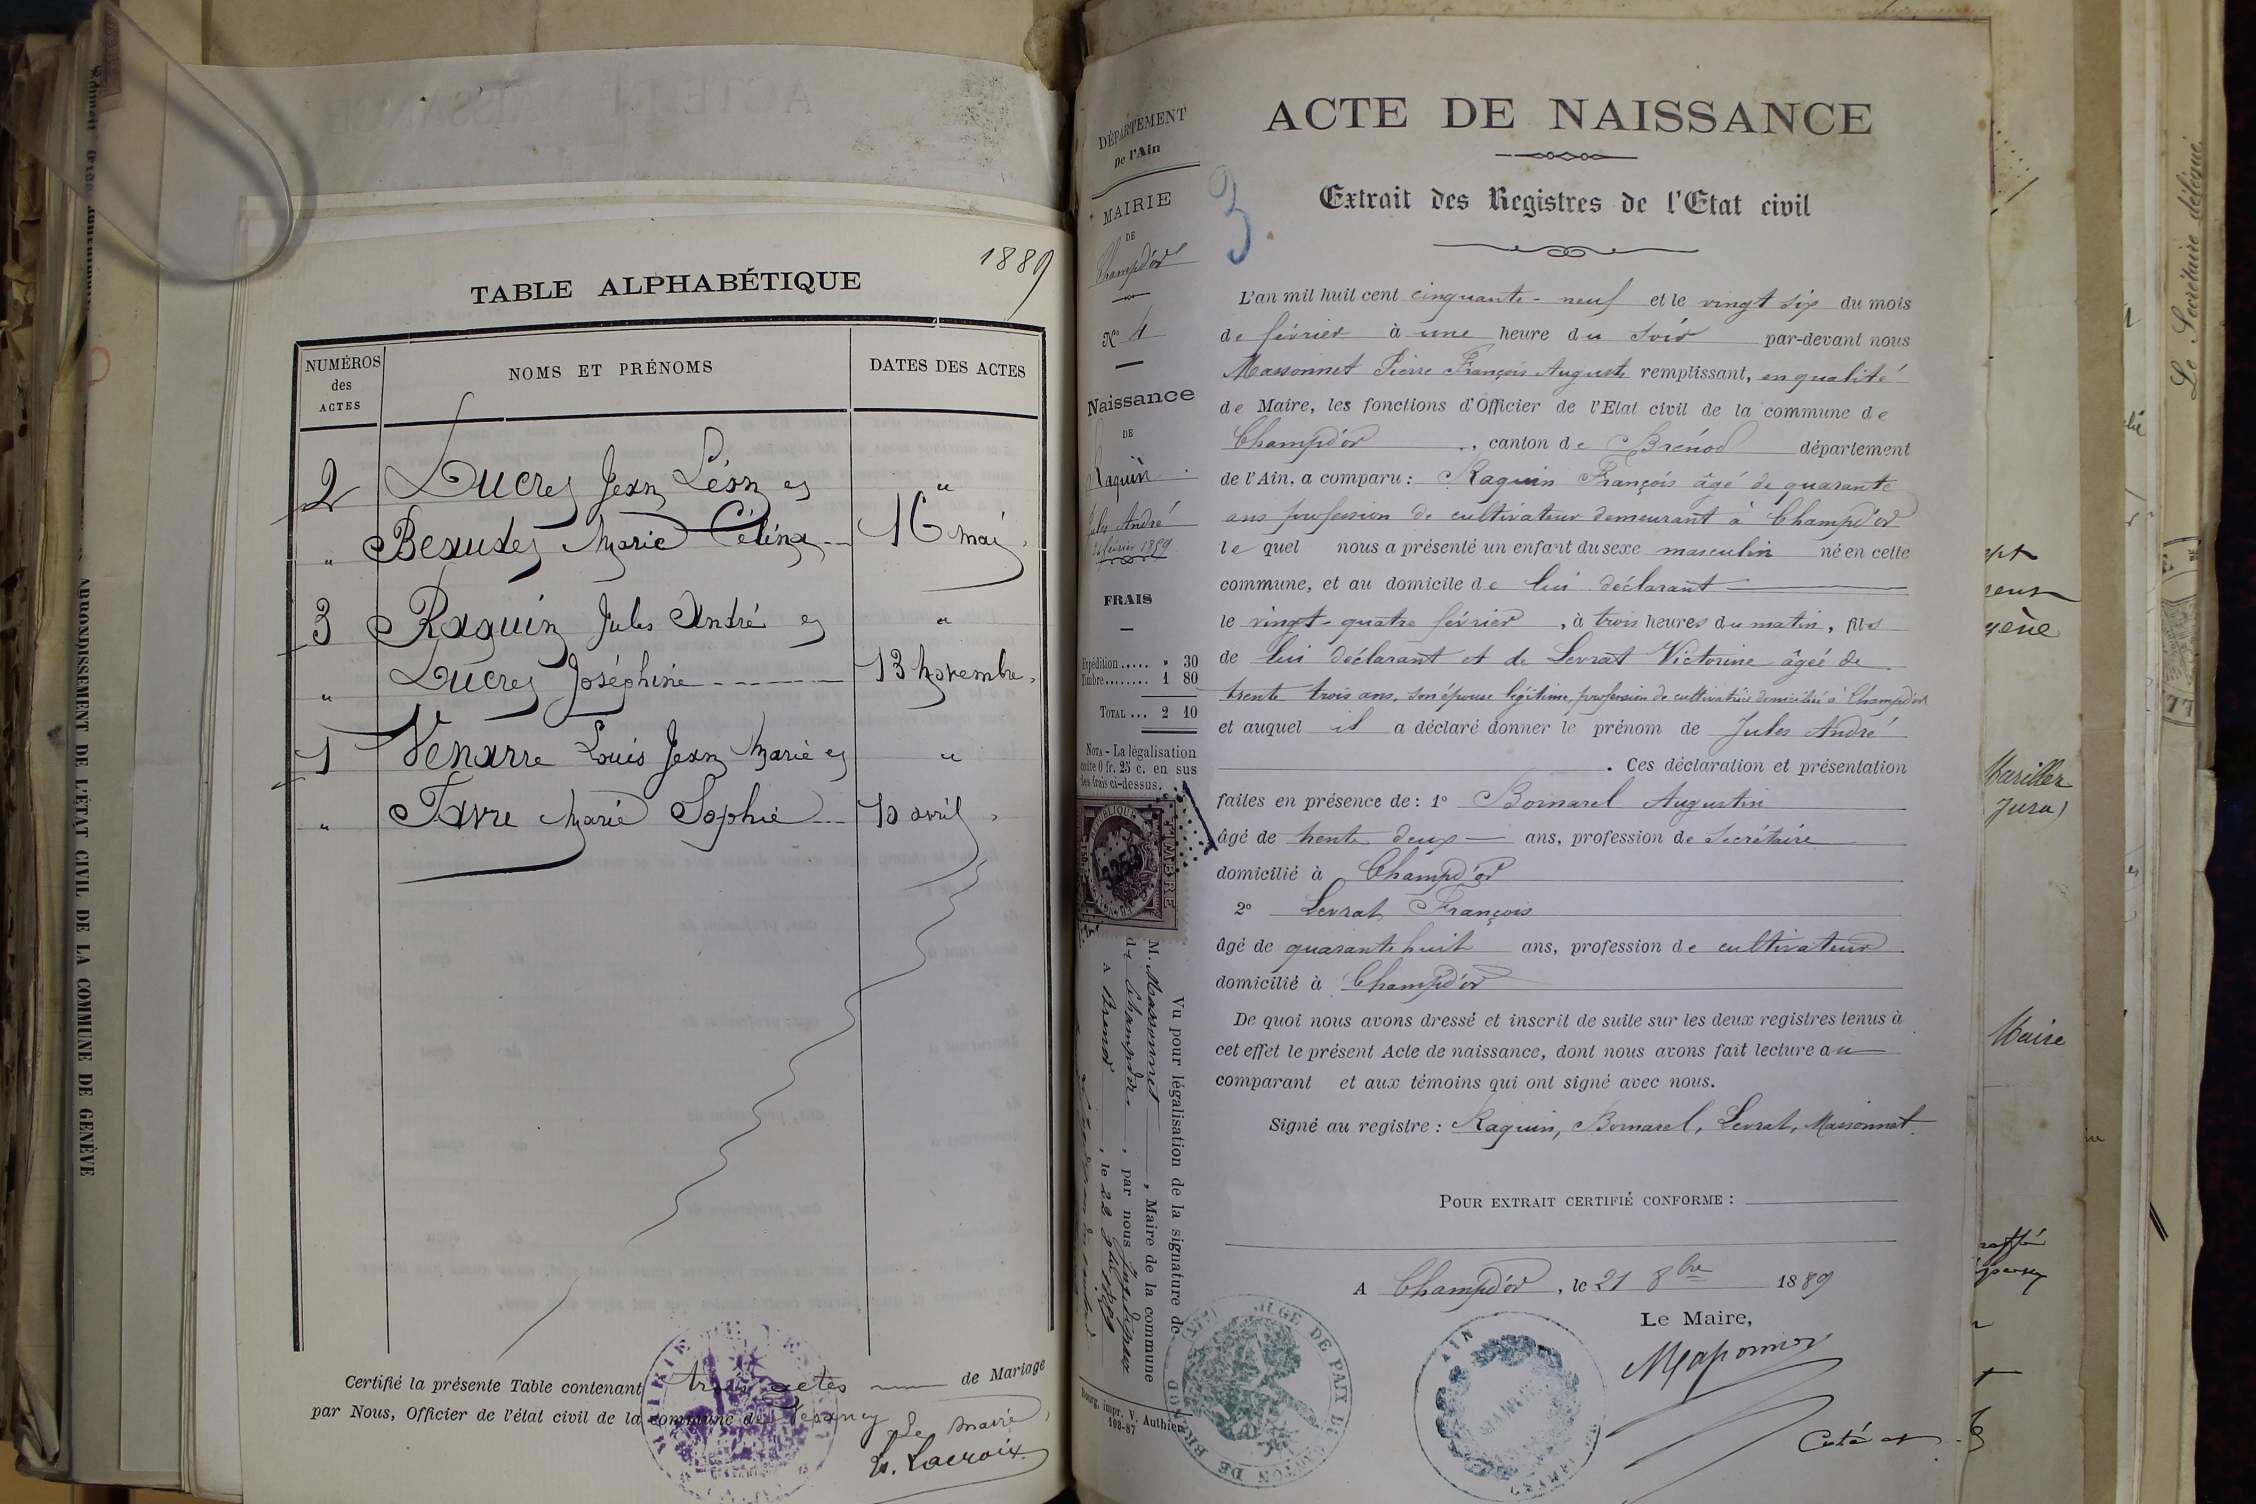 1889
TABLE ALPHABÉTIQUE
NUMÉROS des ACTES
NOMS ET PRÉNOMS
DATES DES ACTES
2 Ducret Jean Léon et "
" Beaudet Marie Célina 16 mai
3 Raquin Jules André et "
" Ducret Joséphine 13 Novembre
1 Venarre Louis Jean Marie et "
" Favre Marie Sophie 10 avril
Certifié la présente Table contenant trois actes de Mariage
par Nous, Officier de l'état civil de la commune de Vesancy
Le Maire,
Lacroix
ARRONDISSEMENT DE L'ÉTAT CIVIL DE LA COMMUNE DE GENÈVE
DÉPARTEMENT
De l'Ain
MAIRIE
DE
Champd'or
No 4
Naissance
DE
Raquin
Jules André
24 février 1859
FRAIS
Expédition ..... » 30
Timbre ........ 1 80
TOTAL ... 2 10
NOTA - La légalisation
coûte 0 fr. 25 c. en sus
des frais ci-dessus.
TIMBRE
Vu pour légalisation de la signature de
M. Massonnet, Maire de la commune
de Champdor, par nous
A Brenod, le 22 8bre 1889
Bourg, impr. V. Authier
198-87
3
ACTE DE NAISSANCE
Extrait des Registres de l'Etat civil
L'an mil huit cent cinquante-neuf et le vingt six du mois
de février à une heure du soir par-devant nous
Massonnet Pierre François Auguste remplissant, en qualité
de Maire, les fonctions d'Officier de l'Etat civil de la commune de
Champd'or, canton de Brénod département
de l'Ain, a comparu : Raquin François âgé de quarante
ans profession de cultivateur demeurant à Champd'or
le quel nous a présenté un enfant du sexe masculin né en cette
commune, et au domicile de lui déclarant
le vingt-quatre février, à trois heures du matin, fils
de lui déclarant et de Levrat Victorine âgée de
trente trois ans, son épouse légitime, profession de cultivatrice domiciliée à Champd'or
et auquel il a déclaré donner le prénom de Jules André
. Ces déclaration et présentation
faites en présence de : 1° Bornarel Augustin
âgé de trente deux ans, profession de secrétaire
domicilié à Champd'or
2° Levrat François
âgé de quarante huit ans, profession de cultivateur
domicilié à Champd'or
De quoi nous avons dressé et inscrit de suite sur les deux registres tenus à
cet effet le présent Acte de naissance, dont nous avons fait lecture au
comparant et aux témoins qui ont signé avec nous.
Signé au registre : Raquin, Bornarel, Levrat, Massonnet.
POUR EXTRAIT CERTIFIÉ CONFORME :
A Champd'or, le 21 8bre 1889
Le Maire,
AIN
Le Secrétaire délégué.
Jura)
Maire